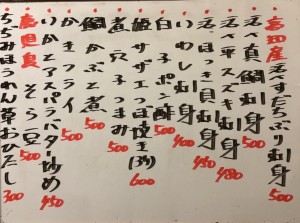 高知産 天然すだちぶり刺身 500
天然真鯛刺身 500
天然平スズキ刺身 480
天然ほっき貝刺身 450
いわし刺身 400
白子ポン酢 500
姫サザエつぼ焼き(3ケ) 600
煮穴子つまみ 500
鯛かぶと煮 500
かきフライ 500
いかとアスパラバター炒め 450
鹿児島 そら豆 500
ちぢみほうれん草おひたし 300